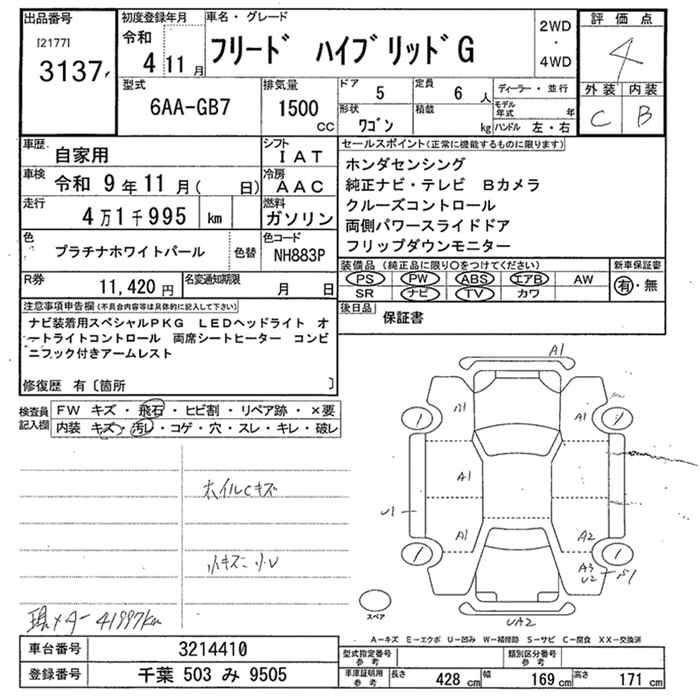 出品番号
[2177]
3137
初度登録年月
令和
4 11 月
車名・グレード
フリード ハイブリッドG
2WD
・
4WD
評価点
4
外装 内装
C B
型式
6AA-GB7
排気量
1500
cc
ドア
5
定員
6 人
ディーラー・並行
形状
ワゴン
積載
kg
モデル年式
年
ハンドル 左・右
車歴
自家用
シフト
IAT
車検
令和 9年11月( 日)
冷房
AAC
走行
4万1千995 km
燃料
ガソリン
色
プラチナホワイトパール
色替
色コード
NH883P
R券
11,420円
名変通知期限
月 日
セールスポイント(正常に機能するものに限ります)
ホンダセンシング
純正ナビ・テレビ Bカメラ
クルーズコントロール
両側パワースライドドア
フリップダウンモニター
装備品(純正品に限り○をつけてください)
PS PW ABS エアB AW
SR ナビ TV カワ
新車保証書
有・無
後日品
保証書
注意事項申告欄(不具合内容等は具体的に記入して下さい)
ナビ装着用スペシャルPKG LEDヘッドライト オ
ートライトコントロール 両席シートヒーター コンビ
ニフック付きアームレスト
修復歴 有〔箇所 〕
検査員
記入欄
FW キズ・飛石・ヒビ割・リペア跡・×要
内装 キズ・汚レ・コゲ・穴・スレ・キレ・破レ
ホイルCキズ
小キズ小U
現メーター41997km
A1
A1
A1
A1
A1
A2
A3
U2
S1
U1
UA2
スペア
A-キズ E-エクボ U-凹み W-補修跡 S-サビ C-腐食 XX-交換済
車台番号
3214410
登録番号
千葉 503 み 9505
型式指定番号
参考
類別区分番号
参考
車庫証明用
参考
長さ
428 cm
幅
169 cm
高さ
171 cm